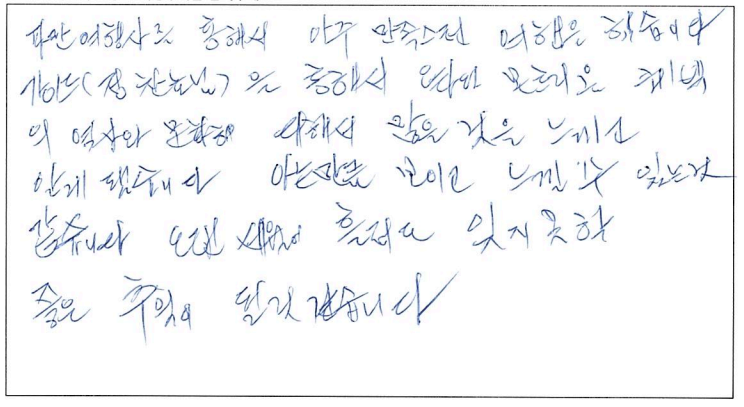 파란여행사를 통해서 아주 만족스런 여행은 했습니다
가이드( 찬눔님)을 통해서 몬트리올 퀘벡
의 역사와 문화에 대해서 많은 것을 느끼고
알게 됐습니다 아는만큼 보이고 느낄 수 있는것
같습니다 오랜 세월이 흘러도 잊지 못할
좋은 추억이 될것 같습니다